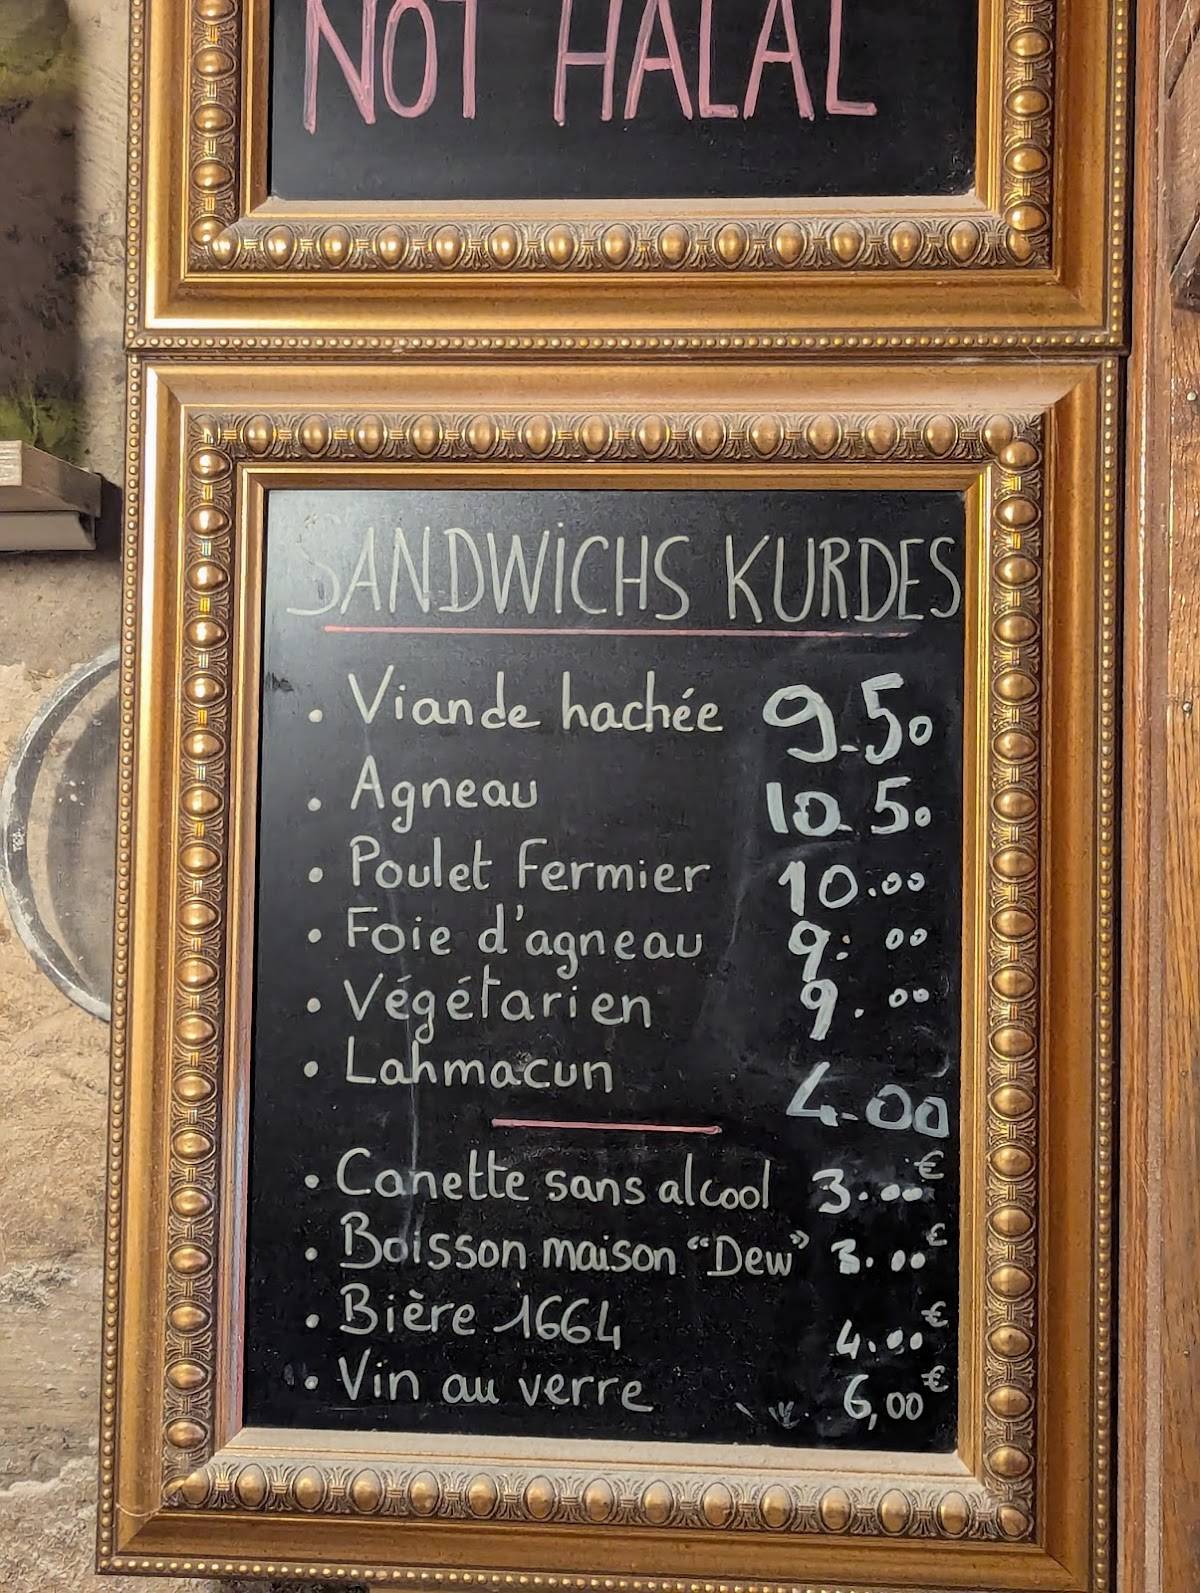 NOT HALAL
SANDWiCHS KURDES
• Viande hachée 9.50
• Agneau 10.50
• Poulet Fermier 10.00
• Foie d'agneau 9.00
• Végétarien 9.00
• Lahmacun 4.00
• Canette sans alcool 3.00€
• Boisson maison "Dew" 3.00€
• Bière 1664 4.00€
• Vin au verre 6,00€